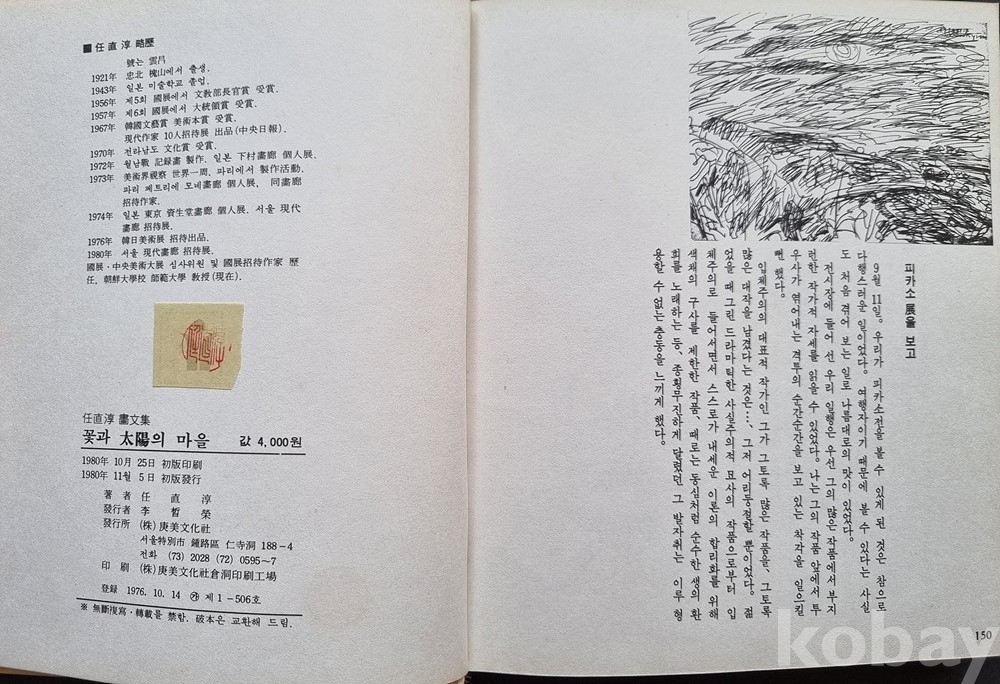 ■ 任直淳 略歷
號는 雲昌
1921年 忠北 槐山에서 출생.
1943年 일본 미술학교 졸업.
1956年 제5회 國展에서 文敎部長官賞 受賞.
1957年 제6회 國展에서 大統領賞 受賞.
1967年 韓國文藝賞 美術本賞 受賞.
現代作家 10人招待展 出品(中央日報).
1970年 전라남도 文化賞 受賞.
1972年 월남戰 記録畫 製作. 일본 下村畫廊 個人展.
1973年 美術界視察 世界一周. 파리에서 製作活動.
파리 페트리에 모네畫廊 個人展, 同畫廊
招待作家.
1974年 일본 東京 資生堂畫廊 個人展. 서울 現代
畫廊 招待展.
1976年 韓日美術展 招待出品.
1980年 서울 現代畫廊 招待展.
國展·中央美術大展 심사위원 및 國展招待作家 歷
任. 朝鮮大學校 師範大學 敎授(現在).
任直淳 畫文集
꽃과 太陽의 마을 값 4,000원
1980年 10月 25日 初版印刷
1980年 11月 5日 初版發行
著者 任直淳
發行者 李晳榮
發行所 (株)庚美文化社
서울特別市 鍾路區 仁寺洞 188-4
전화 (73) 2028 (72) 0595~7
印刷 (株)庚美文化社倉洞印刷工場
登録 1976. 10. 14 ㉮ 제1-506호
※ 無斷復寫·轉載를 禁함. 破本은 교환해 드림.
피카소 展을 보고
9월 11일. 우리가 피카소전을 볼 수 있게 된 것은 참으로
다행스러운 일이었다. 여행자이기 때문에 볼 수 있다는 사실
도 처음 겪어 보는 일로 나름대로의 맛이 있었다.
전시장에 들어 선 우리 일행은 우선 그의 많은 작품에서 부지
런한 작가적 자세를 읽을 수 있었다. 나는 그의 작품 앞에서 투
우사가 엮어내는 격투의 순간순간을 보고 있는 착각을 일으킬
뻔 했다.
입체주의의 대표적 작가인 그가 그토록 많은 작품을, 그토록
많은 대작을 남겼다는 것은…, 그저 어리둥절할 뿐이었다. 젊
었을 때 그린 드라마틱한 사실주의적 묘사의 작품으로부터 입
체주의로 들어서면서 스스로가 내세운 이론의 합리화를 위해
색채의 구사를 제한한 작품, 때로는 동심처럼 순수한 생의 환
희를 노래하는 등, 종횡무진하게 달렸던 그 발자취는 이루 형
용할 수 없는 충동을 느끼게 했다.
150
kobay